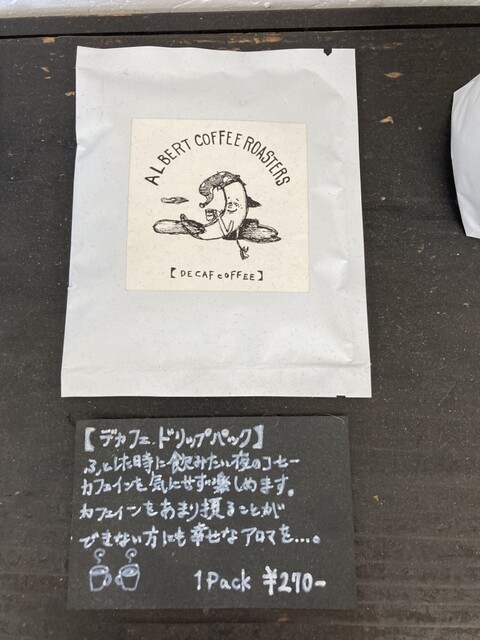 ALBERT COFFEE ROASTERS
【DECAF COFFEE】
【デカフェ ドリップパック】
ふとした時に飲みたい夜のコーヒー
カフェインを気にせず楽しめます。
カフェインをあまり摂ることが
できない方にも幸せなアロマを...。
1Pack ¥270-